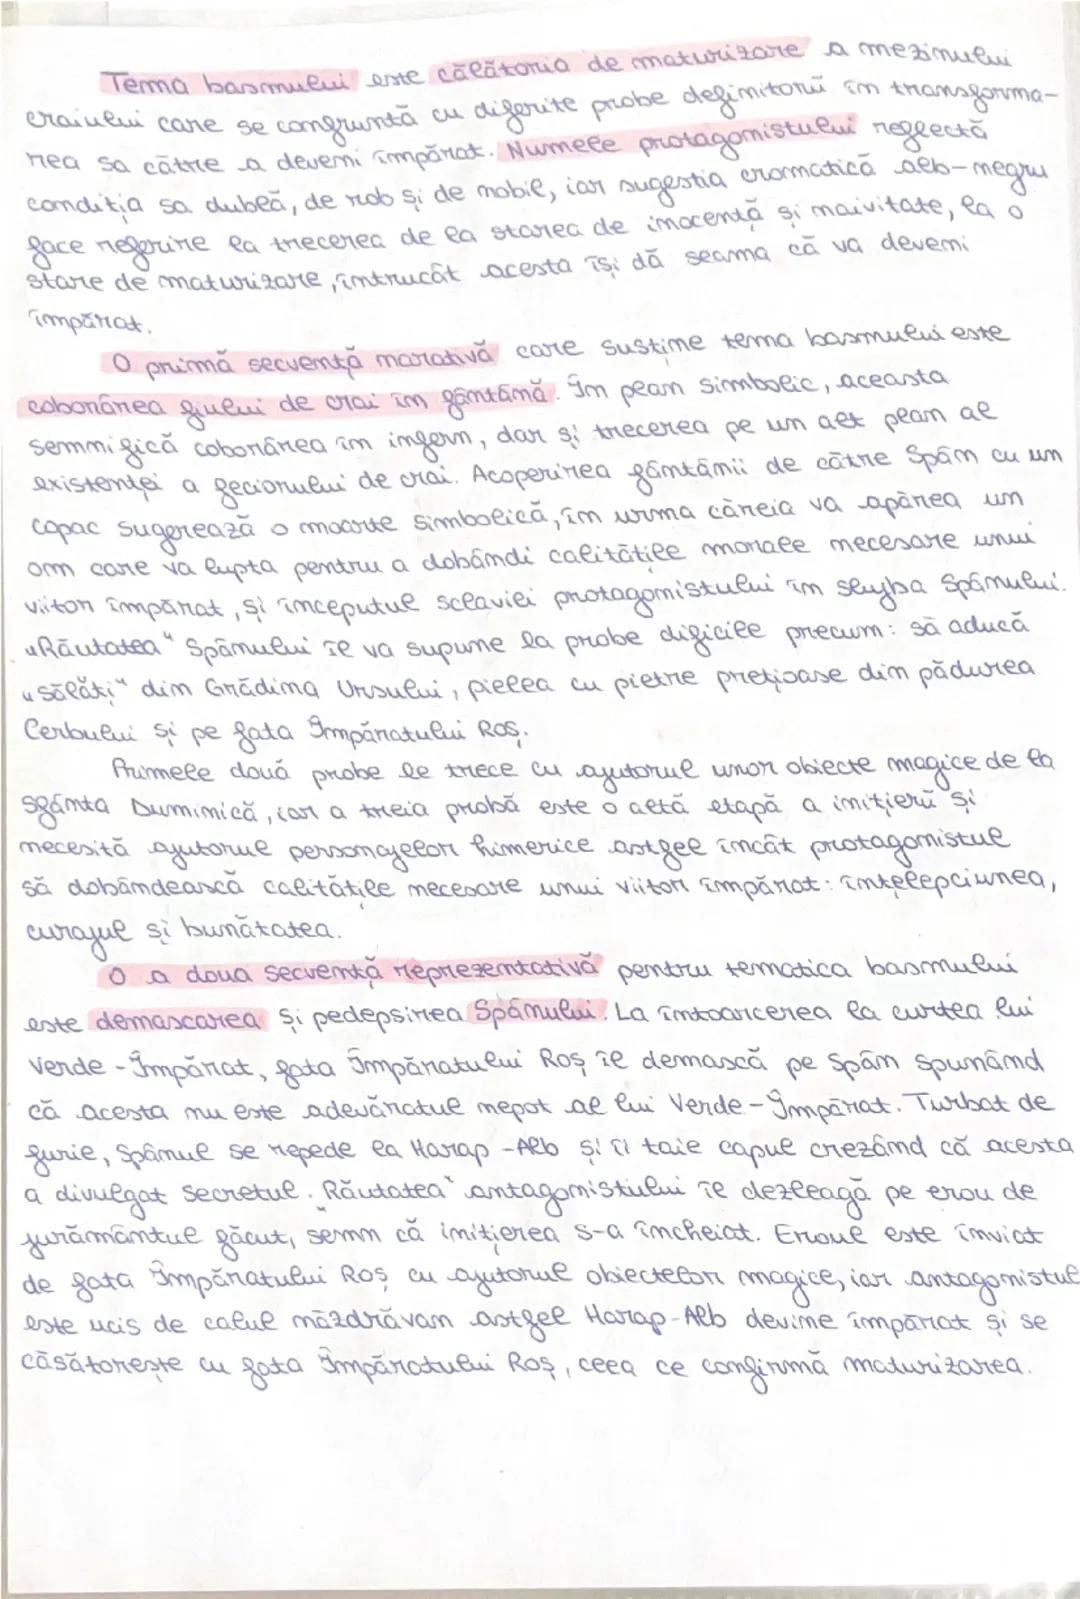 Tema basmului este călătoria de maturizare a mezinului
craiului care se confruntă cu diferite probe definitorii în transforma-
rea sa către a deveni împărat. Numele protagonistului reflectă
condiția sa dublă, de rob și de nobil, iar sugestia cromatică alb-negru
face referire la trecerea de la starea de inocență și naivitate, la o
stare de maturizare, întrucât acesta își dă seama că va deveni
împărat.
O primă secvență narativă care susține tema basmului este
coborârea fiului de crai în fântână. În plan simbolic, aceasta
semnifică coborârea în infern, dar și trecerea pe un alt plan al
existenței a feciorului de crai. Acoperirea fântânii de către Spân cu un
capac sugerează o moarte simbolică, în urma căreia va apărea un
om care va lupta pentru a dobândi calitățile morale necesare unui
viitor împărat, și începutul sclaviei protagonistului în slujba Spânului.
„Răutatea“ Spânului îl va supune la probe dificile precum: să aducă
„sălăți“ din Grădina Ursului, pielea cu pietre prețioase din pădurea
Cerbului și pe fata Împăratului Roș.
Primele două probe le trece cu ajutorul unor obiecte magice de la
sfânta Duminică, iar a treia probă este o altă etapă a inițierii și
necesită ajutorul personajelor himerice astfel încât protagonistul
să dobândească calitățile necesare unui viitor împărat: înțelepciunea,
curajul și bunătatea.
O a doua secvență reprezentativă pentru tematica basmului
este demascarea și pedepsirea Spânului. La întoarcerea la curtea lui
Verde-Împărat, fata Împăratului Roș îl demască pe Spân spunând
că acesta nu este adevăratul nepot al lui Verde-Împărat. Turbat de
furie, Spânul se repede la Harap-Alb și îi taie capul crezând că acesta
a divulgat secretul. „Răutatea“ antagonistului îl dezleagă pe erou de
jurământul făcut, semn că inițierea s-a încheiat. Eroul este înviat
de fata Împăratului Roș cu ajutorul obiectelor magice, iar antagonistul
este ucis de calul năzdrăvan astfel Harap-Alb devine împărat și se
căsătorește cu fata Împăratului Roș, ceea ce confirmă maturizarea.